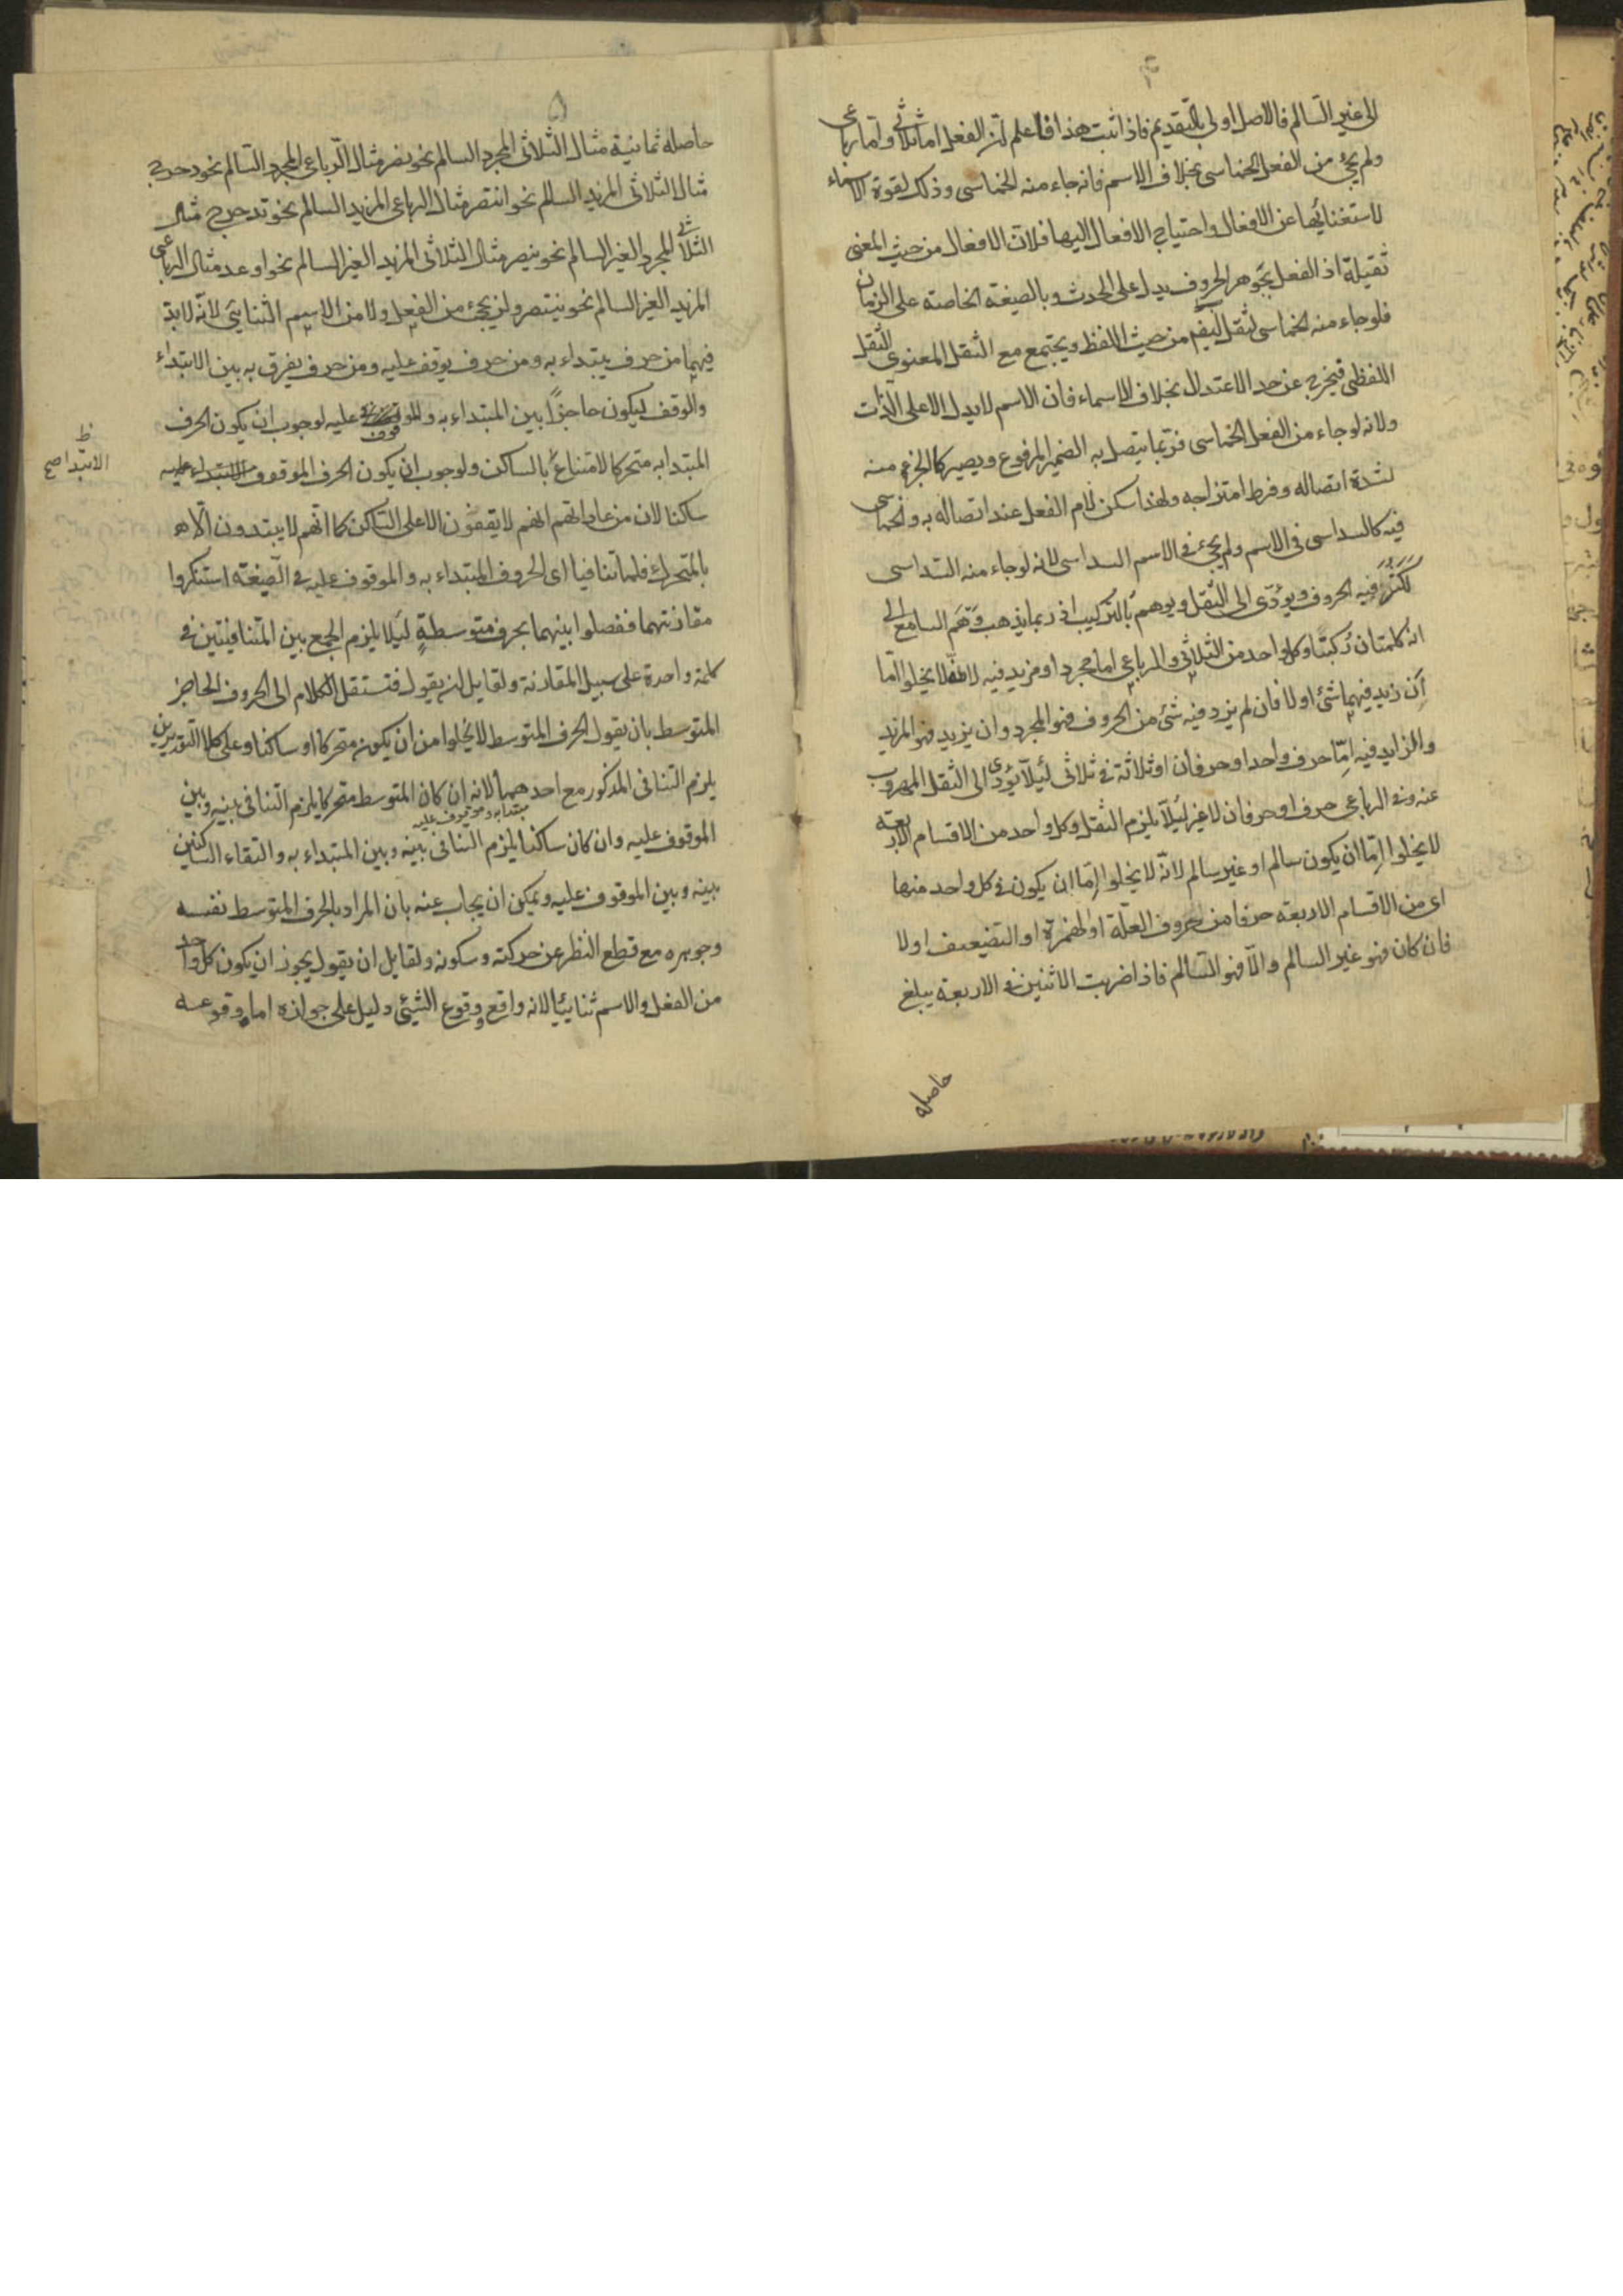 الى غير السالم فالاصل اولى بالتقديم فاذا ثبت هذا فاعلم ان الفعل اما ثلاثى واما رباعى
ولم يجئ من الفعل الخماسى بخلاف الاسم فانه جاء منه الخماسى وذلك لقوة الاسماء
لاستغنائها عن الافعال واحتياج الافعال اليها فلان الافعال من حيث المعنى
ثقيلة اذ الفعل بجوهر الحروف يدل على الحدث وبالصيغة الخاصة على الزمان
فلوجاء منه الخماسى لثقل من حيث اللفظ ويجتمع مع الثقل المعنوى الثقل
اللفظى فيخرج عن حد الاعتدال بخلاف الاسماء فان الاسم لا يدل الا على الذات
ولانه لوجاء من الفعل الخماسى فربما يتصل به الضمير المرفوع ويصير كالجزء منه
لشدة اتصاله وفرط امتزاجه ولهذا سكن لام الفعل عند اتصاله به والخماسى
فيه كالسداسى فى الاسم ولم يجئ فى الاسم السداسى لانه لوجاء منه السداسى
لكثر فيه الحروف ويؤدى الى الثقل ويوهم بالتركيب اى ربما يذهب وهم السامع الى
انه كلمتان ركبتا وكل واحد من الثلاثى والرباعى اما مجرد او مزيد فيه لانه لا يخلوا اما
ان زيد فيهما شئ اولا فان لم يزد فيه شئ من الحروف فهو المجرد وان يزيد فهو المزيد
والزايد فيه اما حرف واحد او حرفان او ثلاثة فى ثلاثى لئلا يؤدى الى الثقل المهروب
عنه وفى الرباعى حرف او حرفان لا غير لئلا يلزم الثقل وكل واحد من الاقسام الاربعة
لا يخلوا اما ان يكون سالم او غير سالم لانه لا يخلوا اما ان يكون فى كل واحد منها
اى من الاقسام الاربعة حرفا من حروف العلة او الهمزة او التضعيف اولا
فان كان فهو غير السالم والا فهو السالم فاذا ضربت الاثنين فى الاربعة يبلغ
حاصله
٥
حاصله ثمانية مثال الثلاثى المجرد السالم نحو نصر مثال الرباعى المجرد السالم نحو دحرج
مثال الثلاثى المزيد السالم نحو انتصر مثال الرباعى المزيد السالم نحو تدحرج مثال
الثلاثى المجرد الغير السالم نحو ينصر مثال الثلاثى المزيد الغير السالم نحو اوعد مثال الرباعى
المزيد الغير السالم نحو ينتصر ولم يجئ من الفعل ولا من الاسم الثنايى لانه لابد
فيهما من حرف يبتداء به ومن حرف يوقف عليه ومن حرف يفرق به بين الابتداء
والوقف ليكون حاجزا بين المبتداء به والموقوف عليه لوجوب ان يكون الحرف
المبتدا به متحركا لامتناع بالساكن ولوجوب ان يكون الحرف الموقوف عليه
الابتدا صح
ساكنا لان من عاداتهم انهم لا يقفون الا على الساكن كما انهم لا يبتدون الا
بالمتحرك فلما تنافيا اى الحروف المبتداء به والموقوف عليه فى الصيغة استنكروا
مقارنتهما ففصلوا بينهما بحرف متوسطة لئلا يلزم الجمع بين المتنافيتين فى
كلمة واحدة على سبيل المقارنة ولقايل ان يقول فتستقل الكلام الى الحروف الحاجز
المتوسط بان يقول الحرف المتوسط لا يخلوا من ان يكون متحركا او ساكنا وعلى كلا التقديرين
يلزم التنافى المذكور مع احدهما لانه ان كان المتوسط متحركا يلزم التنافى بينه وبين
مبتدا به وموقوف عليه
الموقوف عليه وان كان ساكنا يلزم التنافى بينه وبين المبتداء به والتقاء الساكنين
بينه وبين الموقوف عليه ويمكن ان يجاب عنه بان المراد بالحرف المتوسط نفسه
وجوهره مع قطع النظر عن حركته وسكونه ولقايل ان يقول يجوز ان يكون كل واحد
من الفعل والاسم ثنائيا لانه واقع ووقوع الشئ دليل على جوازه اما وقوعه